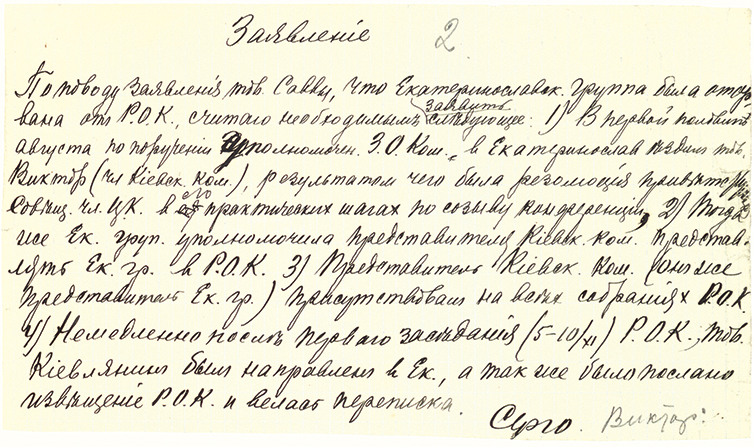 Заявленіе 2
По поводу заявленія тов. Саввы, что Екатеринославск. группа была оторвана от Р.О.К., считаю необходимымъ заявить слѣдующее: 1) В первой половинѣ
августа по порученію уполномочен. З.О. Ком., в Екатеринослав ѣздил тов.
Виктор (чл Кіевск. ком.), результатом чего была резолюція привѣтств
Совѣщ. чл. ЦК. в его практических шагах по созыву конференціи, 2) Тогда
же Ек. груп. уполномочила представителя Кіевск. ком. представ-
лять Ек. гр. в Р.О.К. 3) Представитель Кіевск. Ком. (он же
представитель Ек. гр.) присутствовал на всѣх собраніях Р.О.К.
4) Немедленно послѣ перваго засѣданія (5-10/XI) Р.О.К., тов.
Кіевлянин был направлен в Ек., а так же было послано
извѣщеніе Р.О.К. и велась переписка.
Серго. Виктор.